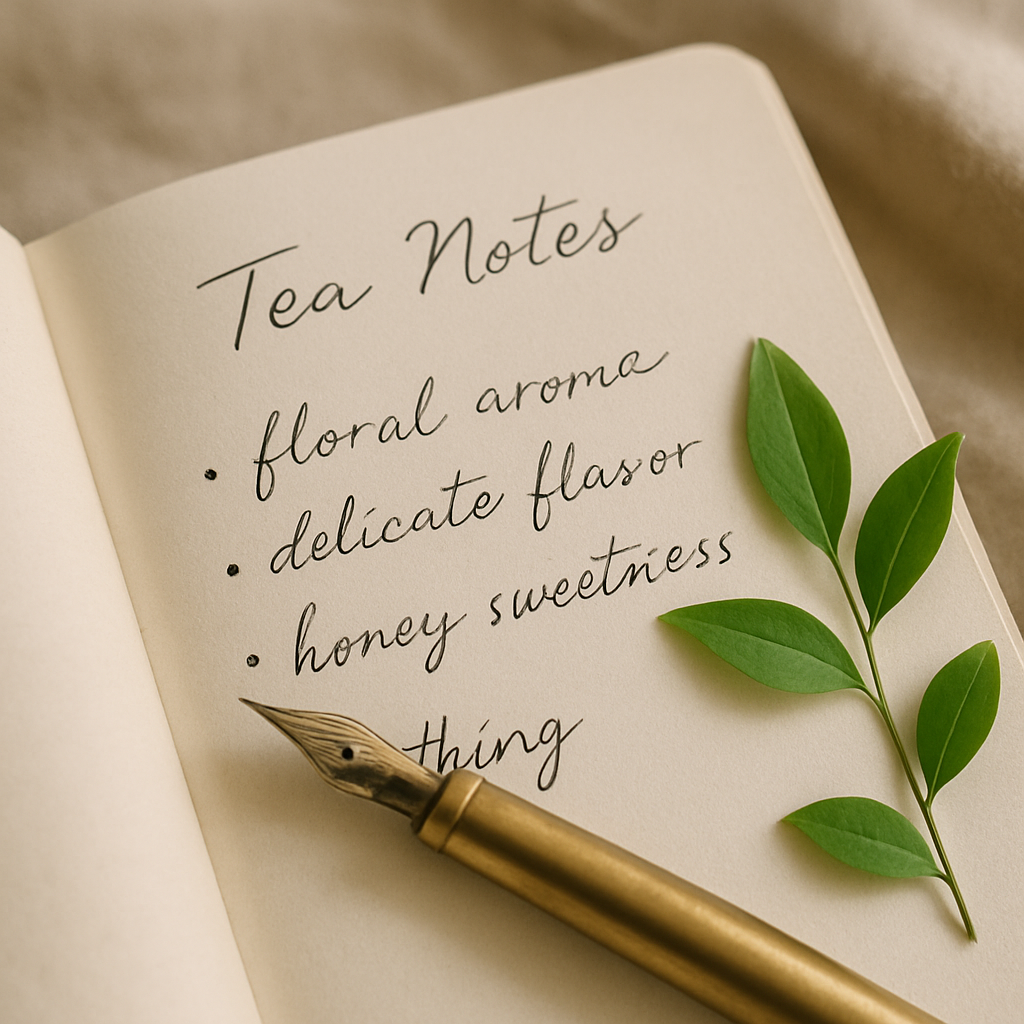 Tea Notes
• floral aroma
• delicate flasor
• honey sweetness
thing